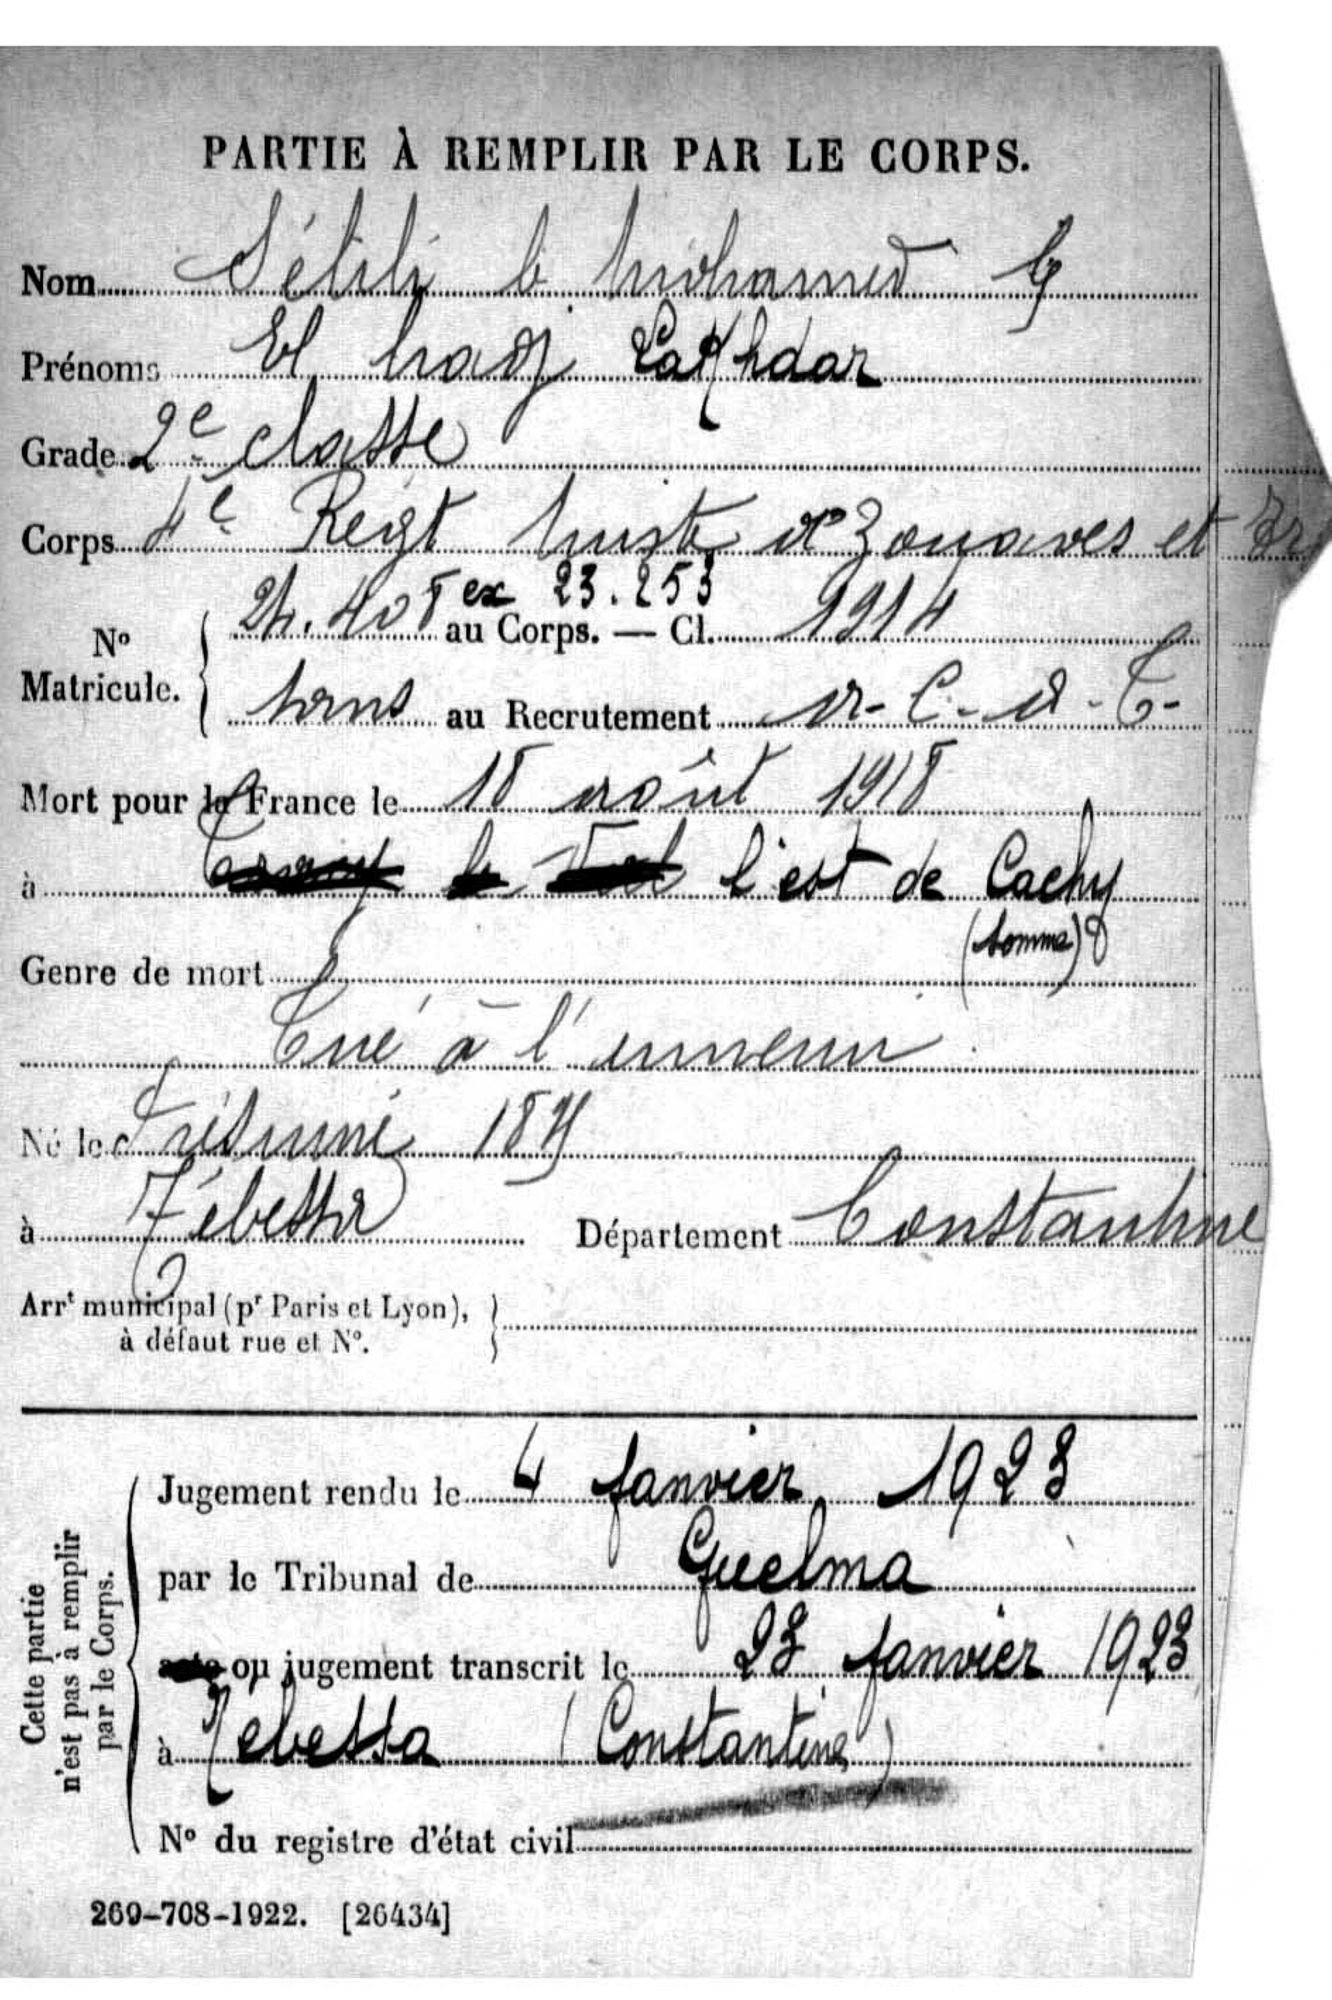 PARTIE À REMPLIR PAR LE CORPS.
Nom Sétili b Mohamed b
Prénoms El hadj Lakhdar
Grade 2e classe
Corps 4e Régt mixte de Zouaves et
ex 23.253
24.408 au Corps. — Cl. 1914
N°
Matricule.
sans au Recrutement
Mort pour la France le 18 août 1918
à l'est de Cachy
(Somme)
Genre de mort
Tué à l'ennemi
Né le Présumé
à Tébessa Département Constantine
Arrt municipal (pr Paris et Lyon),
à défaut rue et N°.
Cette partie
n'est pas à remplir
par le Corps.
Jugement rendu le 4 Janvier 1923
par le Tribunal de Guelma
acte ou jugement transcrit le 23 Janvier 1923
à Tébessa (Constantine)
N° du registre d'état civil
269-708-1922. [26434]